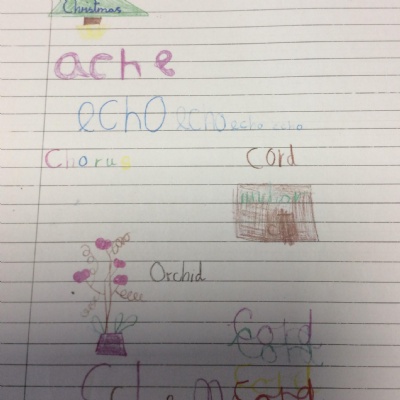 Christmas
ache
echo echo echo echo
Chorus cord
Orchid
Cord
Cord